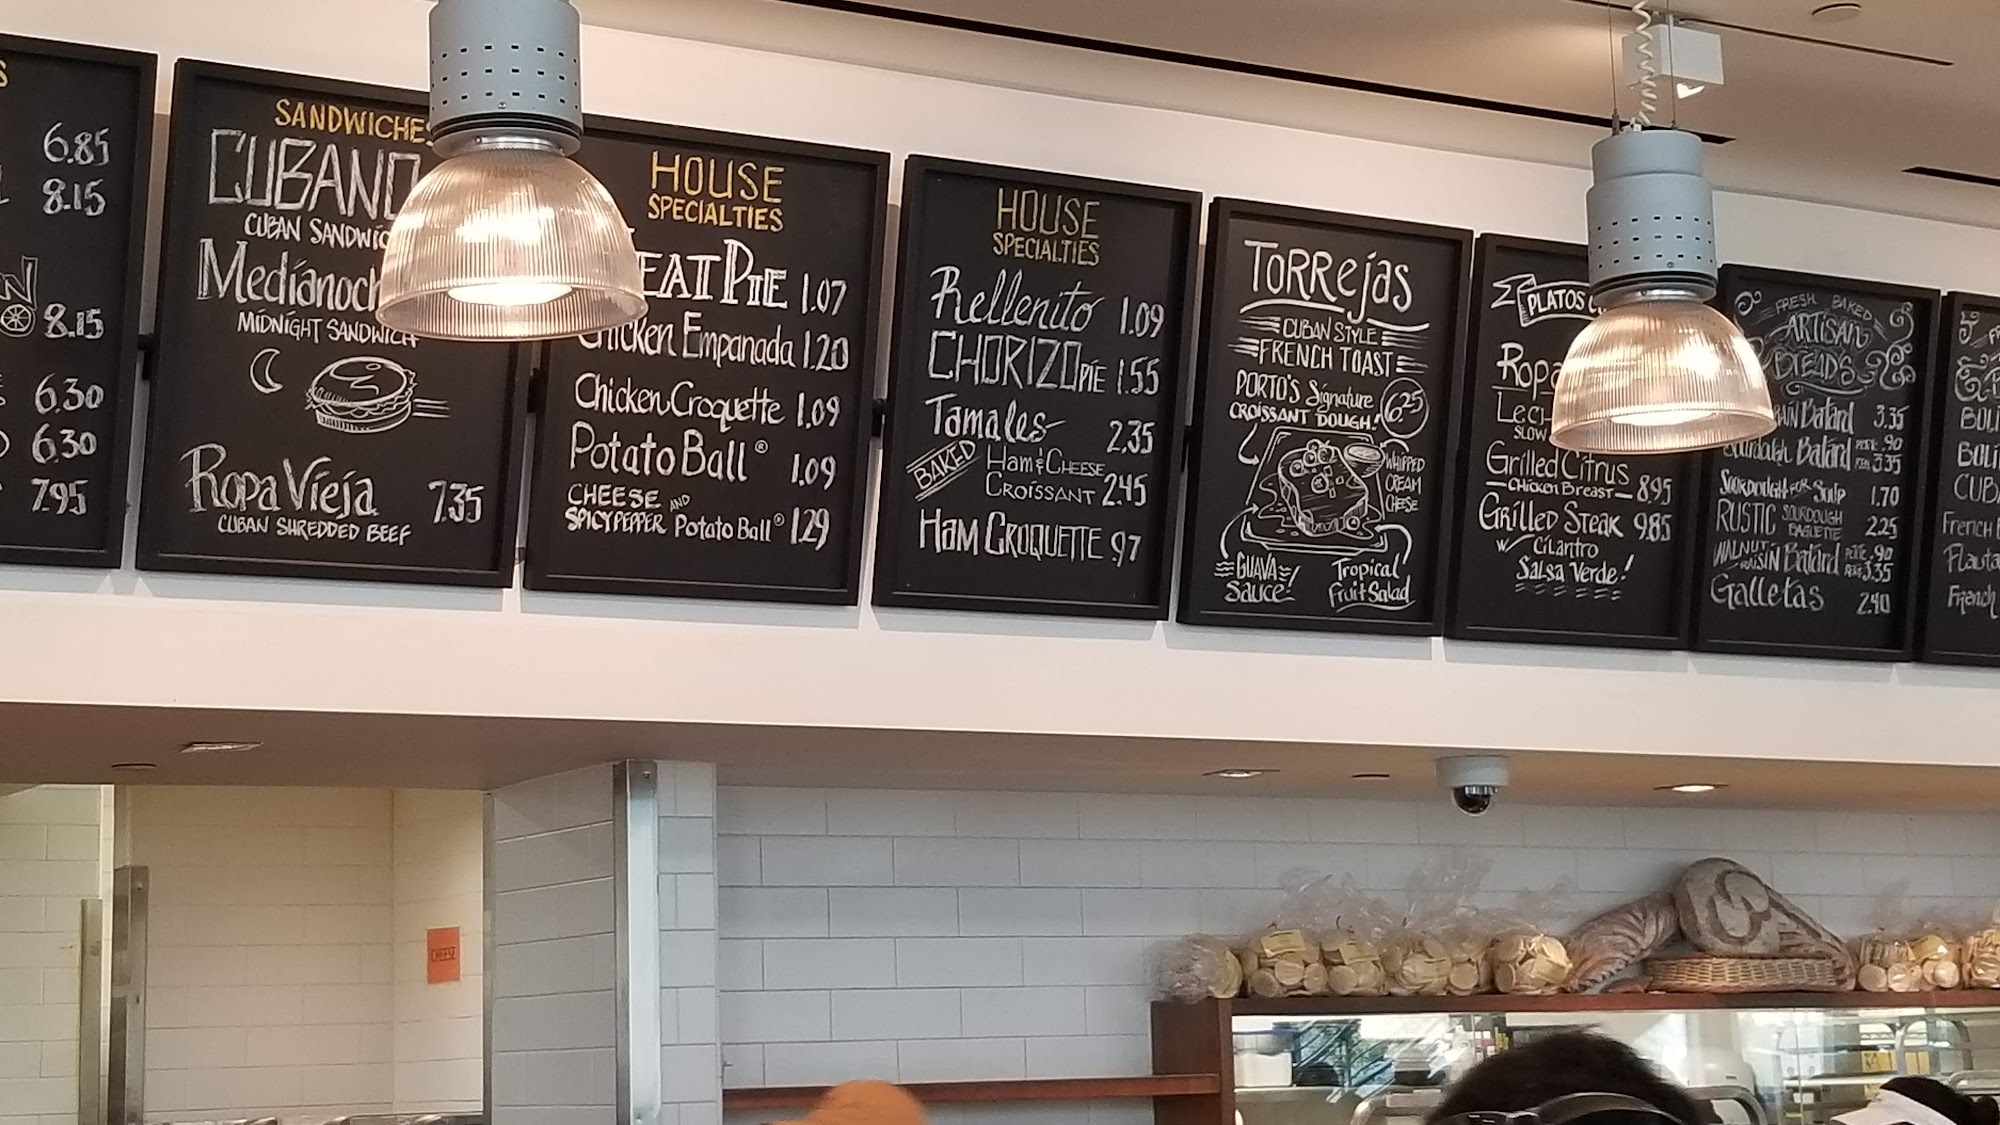 6.85
8.15
8.15
6.30
6.30
7.95
SANDWICHES
CUBANO
CUBAN SANDWIC
Medianoch
MIDNIGHT SANDWICH
Ropa Vieja 7.35
CUBAN SHREDDED BEEF
HOUSE
SPECIALTIES
EAT PIE 1.07
Chicken Empanada 1.20
Chicken Croquette 1.09
Potato Ball® 1.09
CHEESE AND
SPICY PEPPER Potato Ball® 1.29
HOUSE
SPECIALTIES
Rellenito 1.09
CHORIZO PIE 1.55
Tamales 2.35
BAKED Ham & Cheese
Croissant 2.45
Ham Croquette .97
TORRejas
CUBAN STYLE
FRENCH TOAST
PORTO'S Signature
CROISSANT DOUGH! 6.25
WHIPPED
CREAM
CHEESE
GUAVA
Sauce!
Tropical
Fruit Salad
PLATOS
Ropa
Lech
SLOW
Grilled Citrus
Chicken Breast 8.95
Grilled Steak 9.85
w/ Cilantro
Salsa Verde!
FRESH BAKED
ARTISAN
BREADS
Batard 3.35
Sourdough Batard PETITE .90
3.35
Sourdough for Soup 1.70
RUSTIC SOURDOUGH
BAGUETTE 2.25
WALNUT RAISIN Batard PETITE .90
3.35
Galletas 2.40
BOLI
BOLI
CUB
French
Flauta
French
CHEESE